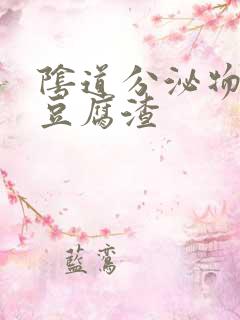 陰道分泌物
豆腐渣
藍鸞